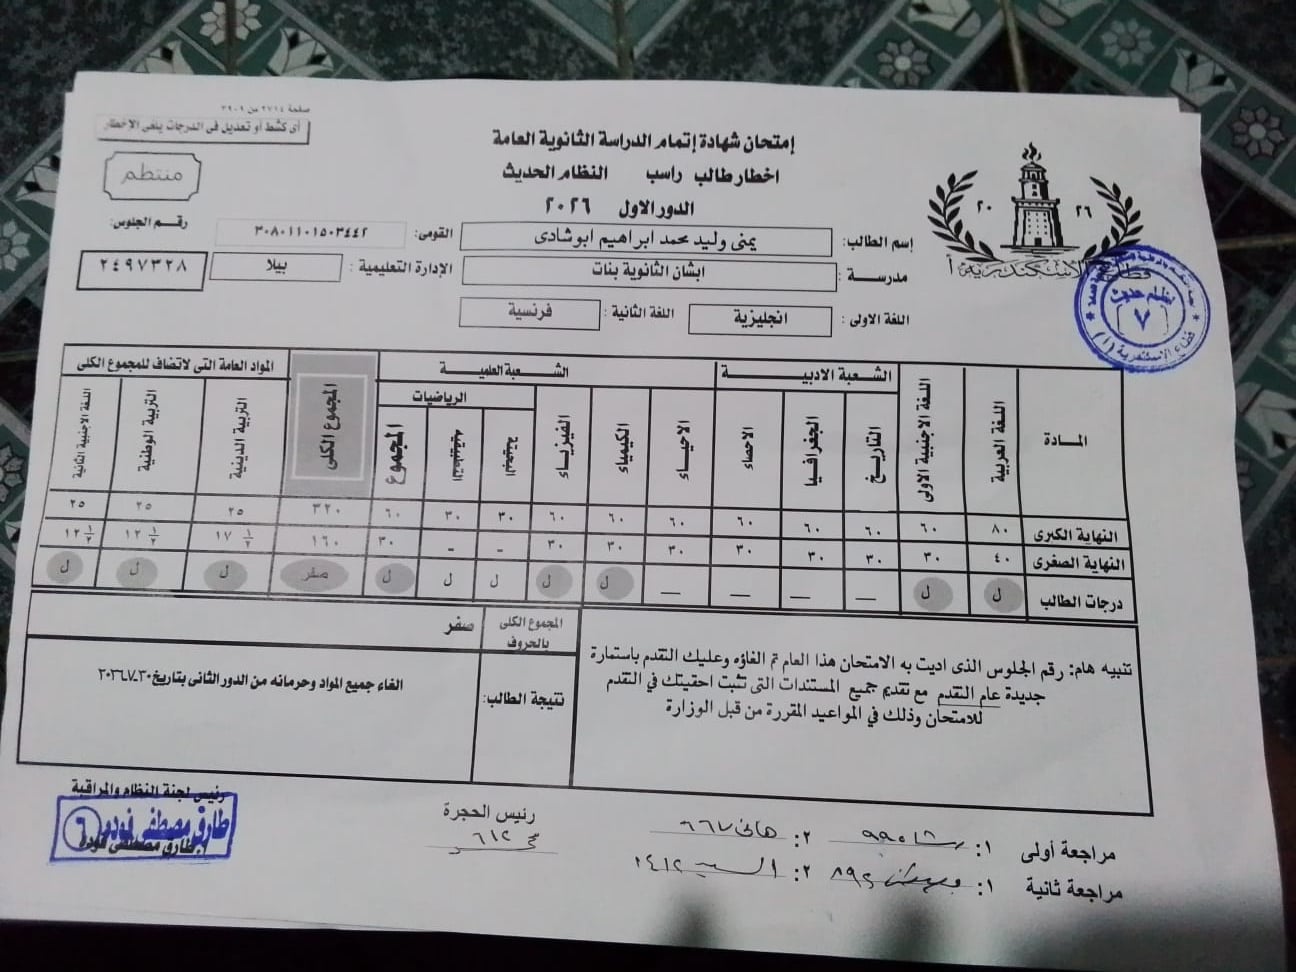 صفحة ٢٧١٤ من ٣٩٠٩
أى كشط أو تعديل فى الدرجات يلغى الإخطار
منتظم
إمتحان شهادة إتمام الدراسة الثانوية العامة
اخطار طالب راسب النظام الحديث
الدور الاول ٢٠٢٦
٢٠ ٢٦
قطاع الإسكندرية أ
نظام حديث
٧
قطاع الاسكندرية (أ)
إسم الطالب: يمنى وليد محمد ابراهيم ابوشادى القومى: ٣٠٨٠١١٠١٥٠٣٤٤٢ رقم الجلوس:
مدرسة: ابشان الثانوية بنات الإدارة التعليمية: بيلا ٢٤٩٧٣٢٨
اللغة الاولى: انجليزية اللغة الثانية: فرنسية
المادة اللغة العربية اللغة الاجنبية الاولى الشعبة الادبية الشعبة العلمية المجموع الكلى المواد العامة التى لاتضاف للمجموع الكلى
التاريخ الجغرافيا الاحصاء الاحياء الكيمياء الفيزياء الرياضيات المجموع التربية الدينية التربية الوطنية اللغة الاجنبية الثانية
النهاية الكبرى ٨٠ ٦٠ ٦٠ ٦٠ ٦٠ ٦٠ ٦٠ ٦٠ ٣٠ ٣٠ ٦٠ ٣٢٠ ٢٥ ٢٥ ٢٥
النهاية الصغرى ٤٠ ٣٠ ٣٠ ٣٠ ٣٠ ٣٠ ٣٠ ٣٠ - - ٣٠ ١٦٠ ١٧ ½ ١٢ ½ ١٢ ½
درجات الطالب ل ل — — — — ل ل ل ل ل صفر ل ل ل
المجموع الكلى بالحروف صفر
نتيجة الطالب: الغاء جميع المواد وحرمانه من الدور الثانى بتاريخ ٢٠٢٦٧٣٠
تنبيه هام: رقم الجلوس الذى اديت به الامتحان هذا العام تم الغاؤه وعليك التقدم باستمارة
جديدة عام التقدم مع تقديم جميع المستندات التى تثبت احقيتك في التقدم
للامتحان وذلك في المواعيد المقررة من قبل الوزارة
مراجعة أولى ١: ٢: هانى ٦٦٧
مراجعة ثانية ١: ٢: السيد ١٤١٢
رئيس الحجرة
٦١٢
رئيس لجنة النظام والمراقبة
طارق مصطفى فوده ٦
طارق مصطفى فودة